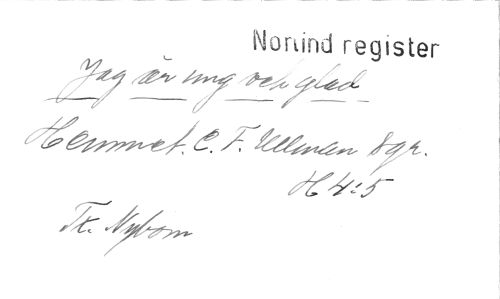 Norlind register
Jag är ung och glad
Hemmet. C. F. Ullman Dgr.
H 4:5
Tr. Nybom